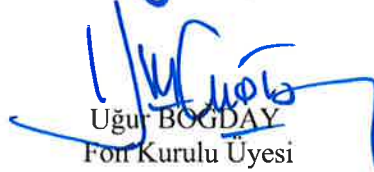 Uğur BOĞDAY
Fon Kurulu Üyesi